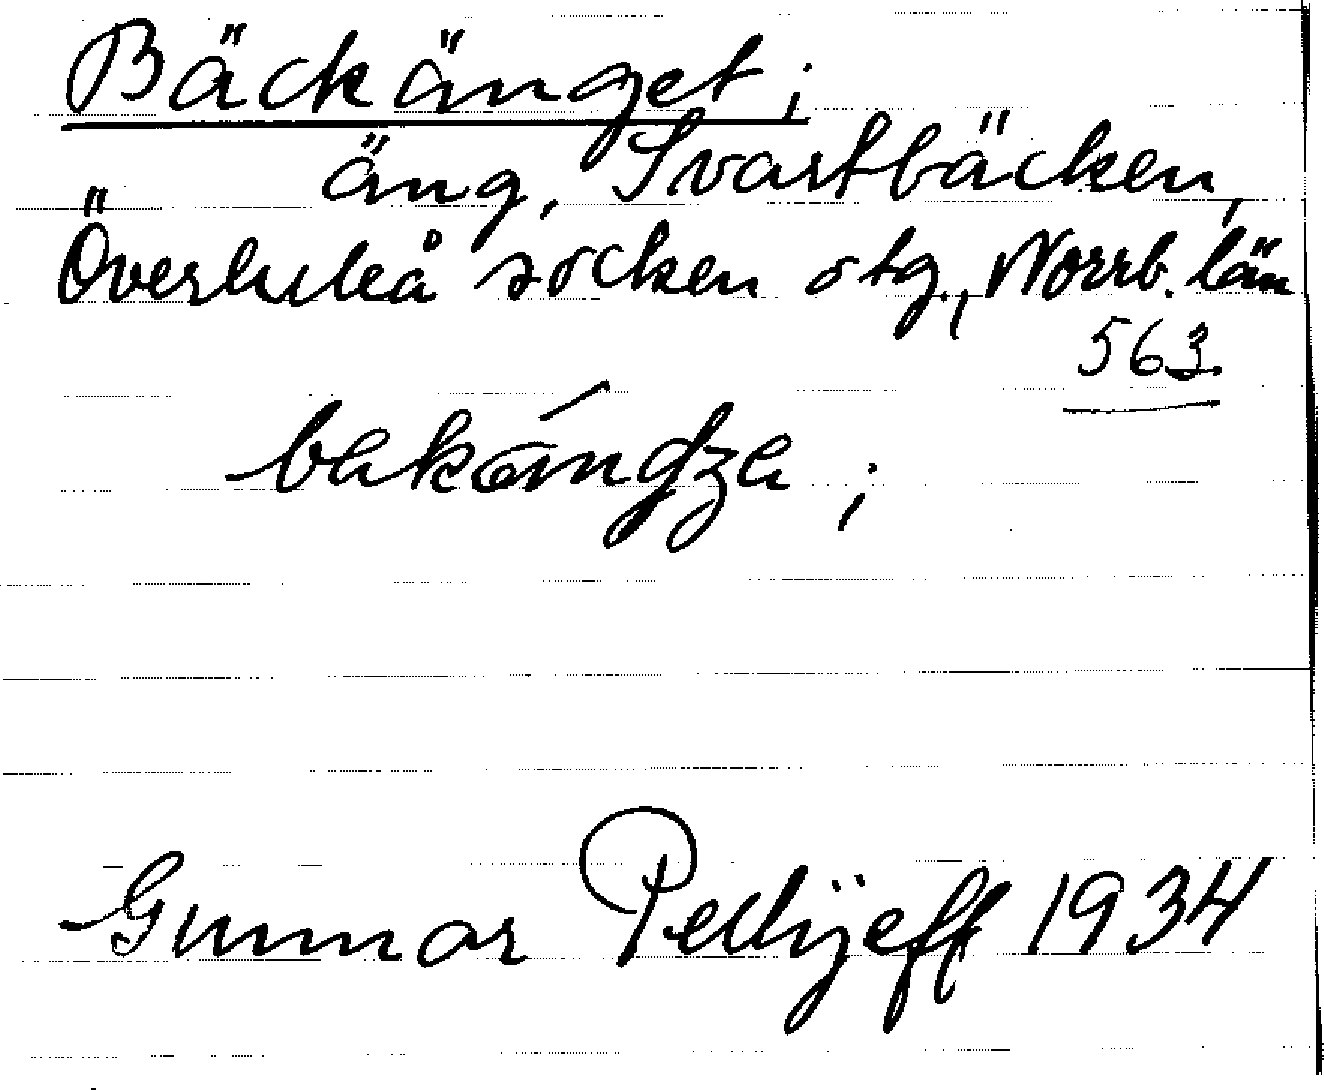 Bäckänget;
äng, Svartbäcken,
Överluleå socken otg., Norrb. län
563.
bakǽndza;
Gunnar Pellijeff 1934